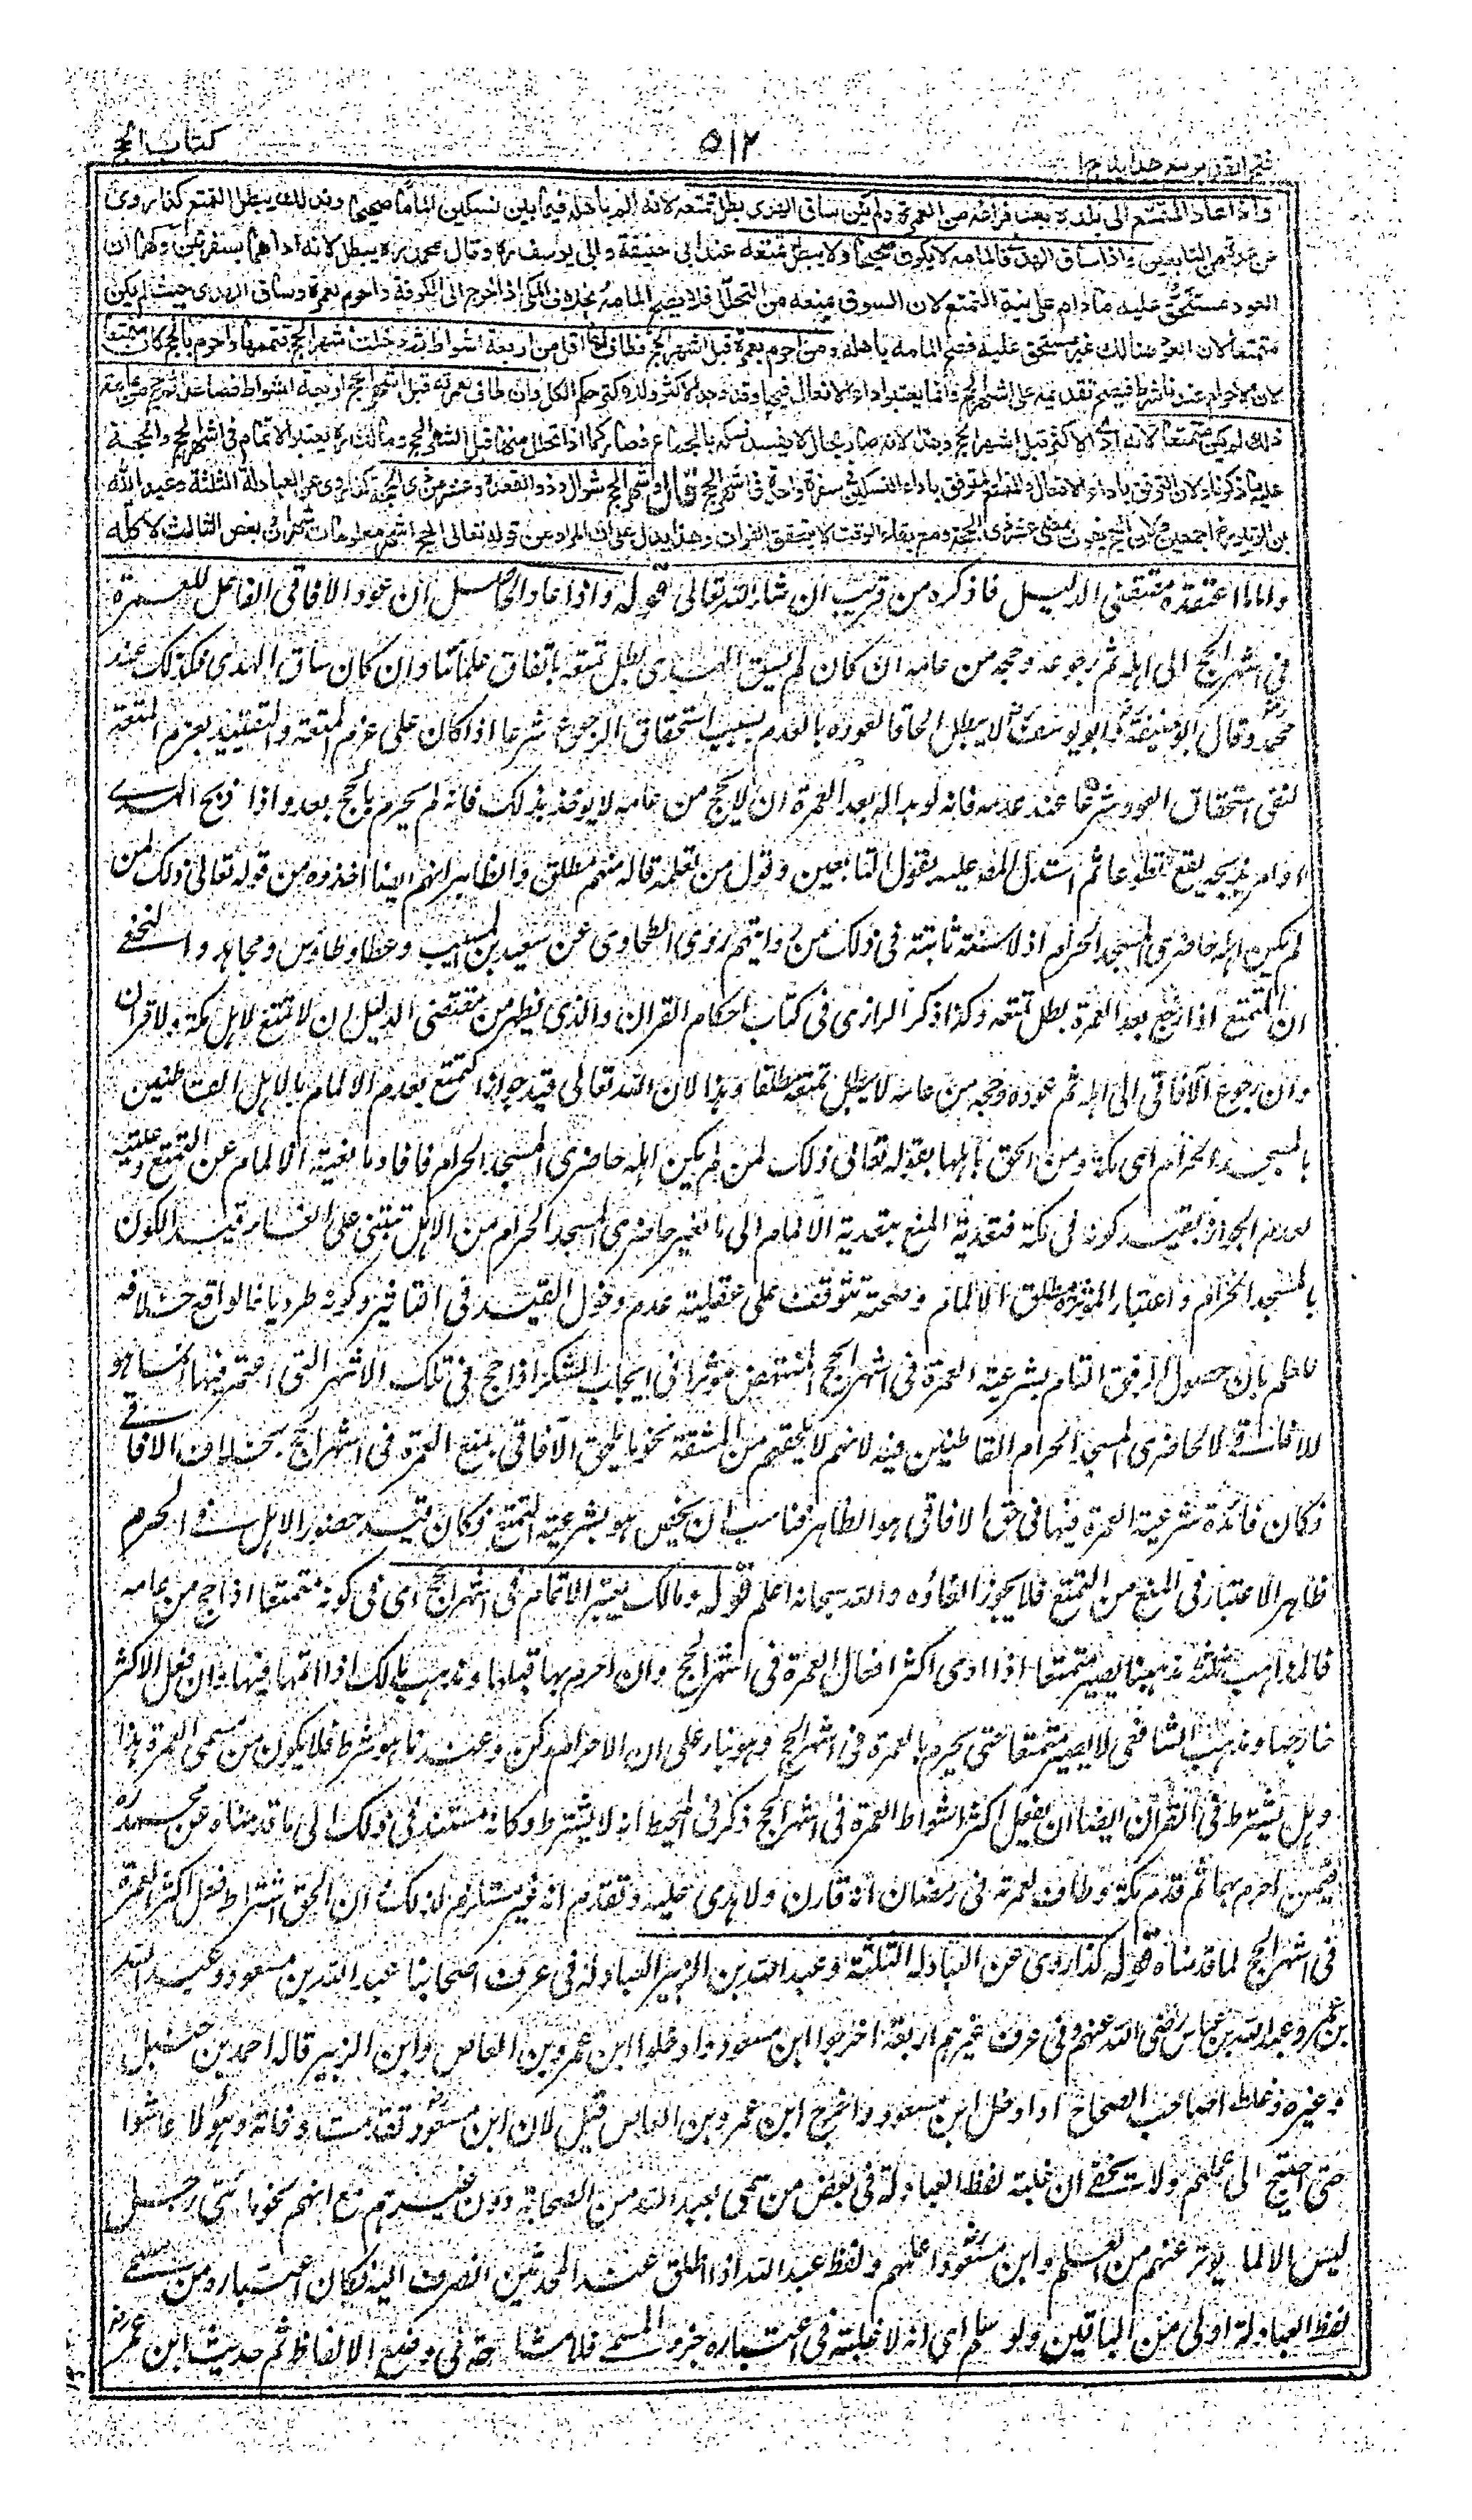 فتح القدير مع هدايه ج ا
٥١٢
كتاب الحج
واذا عاد المتمتع الى بلده بعد فراغه من العمرة ولم يكن ساق الهدى بطل تمتعه لانه الم باهله فيما بين نسكين الماما صحيحا وبذلك يبطل التمتع كذا روى
عن عدة من التابعين واذا ساق الهدى فالمامه لا يكون صحيحا ولا يبطل تمتعه عند ابى حنيفة وابى يوسف ره وقال محمد ره يبطل لانه اداهما بسفرتين ولهما ان
العود مستحق عليه مادام على نية التمتع لان السوق يمنعه من التحلل فلا يصح المامه بخلاف المكى اذا خرج الى الكوفة واحرم بعمرة وساق الهدى حيث لم يكن
متمتعا لان العود هنالك غير مستحق عليه فصح المامه باهله ومن احرم بعمرة قبل اشهر الحج فطاف لها اقل من اربعة اشواط ثم دخلت اشهر الحج فتممها واحرم بالحج كان متمتعا
لان الاحرام عندنا شرط فيصح تقديمه على اشهر الحج وانما يعتبر اداء الافعال فيها وقد وجد الاكثر وللاكثر حكم الكل وان طاف لعمرته قبل اشهر الحج اربعة اشواط فصاعدا ثم حج من عامه
ذلك لم يكن متمتعا لانه ادى الاكثر قبل اشهر الحج وهذا لانه صار بحال لا يفسد نسكه بالجماع فصار كما اذا تحلل منها قبل اشهر الحج ومالك ره يعتبر الاتمام فى اشهر الحج والحجة
عليه ما ذكرنا ولان الترفق باداء الافعال والمتمتع المترفق باداء النسكين فى سفرة واحدة فى اشهر الحج قال واشهر الحج شوال وذو القعدة وعشر من ذى الحجة كذا روى عن العبادلة الثلثة وعبد الله
بن الزبير رض اجمعين ولان الحج يفوت بمضى عشر ذى الحجة ومع بقاء الوقت لا يتحقق الفوات وهذا يدل على ان المراد من قوله تعالى الحج اشهر معلومات شهران وبعض الثالث لا كله
واما ما اعتقده مقتضى الدليل فاذكره من قريب ان شاء الله تعالى قوله واذا عاد الحاصل ان عود الافاقى الفاعل للعمرة
فى اشهر الحج الى اهله ثم رجوعه وحجه من عامه ان كان لم يسق الهدى بطل تمتعه باتفاق علمائنا وان كان ساق الهدى فكذلك عند
محمد وقال ابو حنيفة وابو يوسف لا يبطل الحاقا لعوده بالعدم بسبب استحقاق الرجوع شرعا اذا كان على عزم المتعة والتقييد بعزم المتعة
لنفى استحقاق العود شرعا عند عدمه فانه لو بدا له بعد العمرة ان لا يحج من عامه لا يؤخذ بذلك فانه لم يحرم بالحج بعد واذا ذبح الهدى
او امر بذبحه يقع تطوعا ثم استدل المص عليه بقول التابعين وقول من نعلمه قاله منهم مطلق والظاهر انهم ايضا اخذوه من قوله تعالى ذلك لمن
لم يكن اهله حاضرى المسجد الحرام اذ لا سنة ثابتة فى ذلك من روايتهم روى الطحاوى عن سعيد بن المسيب وعطا وطاوس ومجاهد والنخعى
ان المتمتع اذا رجع بعد العمرة بطل تمتعه وكذا ذكر الرازى فى كتاب احكام القران والذى يظهر من مقتضى الدليل ان لا تمتع لاهل مكة ولا قران
وان رجوع الافاقى الى اهله ثم عوده وحجه من عامه لا يبطل تمتعه مطلقا وهذا لان الله تعالى قيد جواز التمتع بعدم الالمام بالاهل القاطنين
بالمسجد الحرام اى مكة ومن الحق باهلها بقوله تعالى ذلك لمن لم يكن اهله حاضرى المسجد الحرام فافاد مانعية الالمام عن التمتع وعليته
لعدم الجواز بقيد كونه فى مكة فتعدية المنع بتعدية الالمام الى ما بغير حاضرى المسجد الحرام من الاهل تبتنى على الغاء قيد الكون
بالمسجد الحرام واعتبار المؤثر مطلق الالمام وصحته تتوقف على عقلية عدم دخول القيد فى التاثير وكونه طرديا فالواقع خلافه
للعلم بان حصول الرفق التام بشرعية العمرة فى اشهر الحج المنتهض مؤثرا فى ايجاب الشكر اذا حج فى تلك الاشهر التى اعتمر فيها انما هو
للافاقى لا لحاضرى المسجد الحرام القاطنين فيه لانهم لا يلحقهم من المشقة نحو ما يلحق الافاقى بمنع العمرة فى اشهر الحج بخلاف الافاقى
فكان فائدة شرعية العمرة فيها فى حق الافاقى هو الظاهر فناسب ان يخص هو بشرعية التمتع فكان قيد حضور الاهل فى الحرم
ظاهر الاعتبار فى المنع من التمتع فلا يجوز الغاؤه والله سبحانه اعلم قوله ومالك يعتبر الاتمام فى اشهر الحج اى فى كونه متمتعا اذا حج من عامه
فالمذاهب ثلثة مذهبنا يصير متمتعا اذا ادى اكثر افعال العمرة فى اشهر الحج وان احرم بها قبلها ومذهب مالك اذا اتمها فيها وان فعل الاكثر
خارجها ومذهب الشافعى لا يصير متمتعا حتى يحرم بالعمرة فى اشهر الحج وهو بناء على ان الاحرام ركن وعندنا هو شرط فلا يكون من مسمى العمرة هذا
وهل يشترط فى القران ايضا ان يفعل اكثر اشواط العمرة فى اشهر الحج ذكر فى المحيط انه لا يشترط وكانه مستند فى ذلك الى ما قدمناه عن محمد ره
فيمن احرم بهما ثم قدم مكة وطاف لعمرته فى رمضان انه قارن ولا هدى عليه وتقدم انه غير مستلزم لذلك وان الحق اشتراط فعل اكثر العمرة
فى اشهر الحج لما قدمناه قوله كذا روى عن العبادلة الثلثة وعبد الله بن الزبير العبادلة فى عرف اصحابنا عبد الله بن مسعود وعبد الله
بن عمر وعبد الله بن عباس رضى الله عنهم وفى عرف غيرهم اربعة اخرجوا ابن مسعود وادخلوا ابن عمرو بن العاص وابن الزبير قاله احمد بن حنبل
وغيره وغلط صاحب الصحاح اذ ادخل ابن مسعود واخرج ابن عمرو بن العاص قيل لان ابن مسعود تقدمت وفاته وهؤلاء عاشوا
حتى احتيج الى علمهم ولا يخفى ان غلبة لفظ العبادلة فى بعض من سمى بعبد الله من الصحابة دون غيرهم مع انهم نحو مائتى رجل
ليس الا لما يؤثر عنهم من العلم وابن مسعود اعلمهم ولفظ عبد الله اذا اطلق عند المحدثين انصرف اليه فكان اعتباره من مسمى
لفظ العبادلة اولى من الباقين ولو سلم اى انه لا غلبة فى اعتباره جزء المسمى فلا مشاحة فى وضع الالفاظ ثم حديث ابن عمر رض